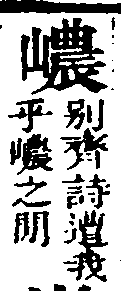 嶩
別齊詩遭我
乎嶩之閒